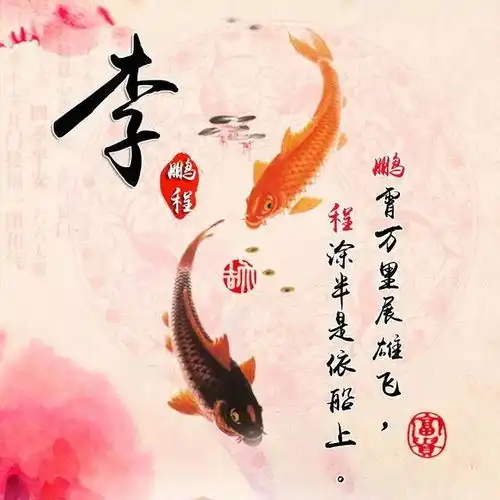 李
鹏程
鹏霄万里展雄飞，
程涂半是依船上。
富贵